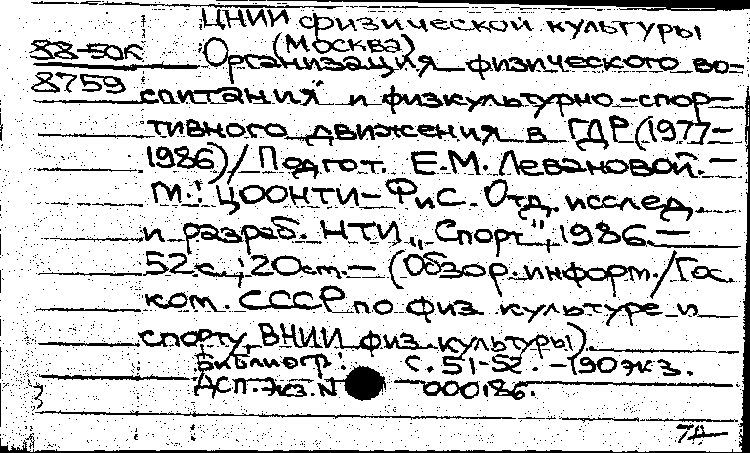 ЦНИИ физической культуры
(Москва)
88-50к
8759
Организация физического во-
спитания и физкультурно-спор-
тивного движения в ГДР (1977-
1986) / Подгот. Е.М. Левановой. -
М.: ЦООНТИ-ФиС. Отд. исслед.
и разраб. НТИ „Спорт", 1986. -
52 с.; 20 см. - (Обзор. информ. / Гос.
ком. СССР по физ культуре и
спорту, ВНИИ физ. культуры).
Библиогр.: с. 51-52. - 190 экз.
ДСП. Экз. N 000186.